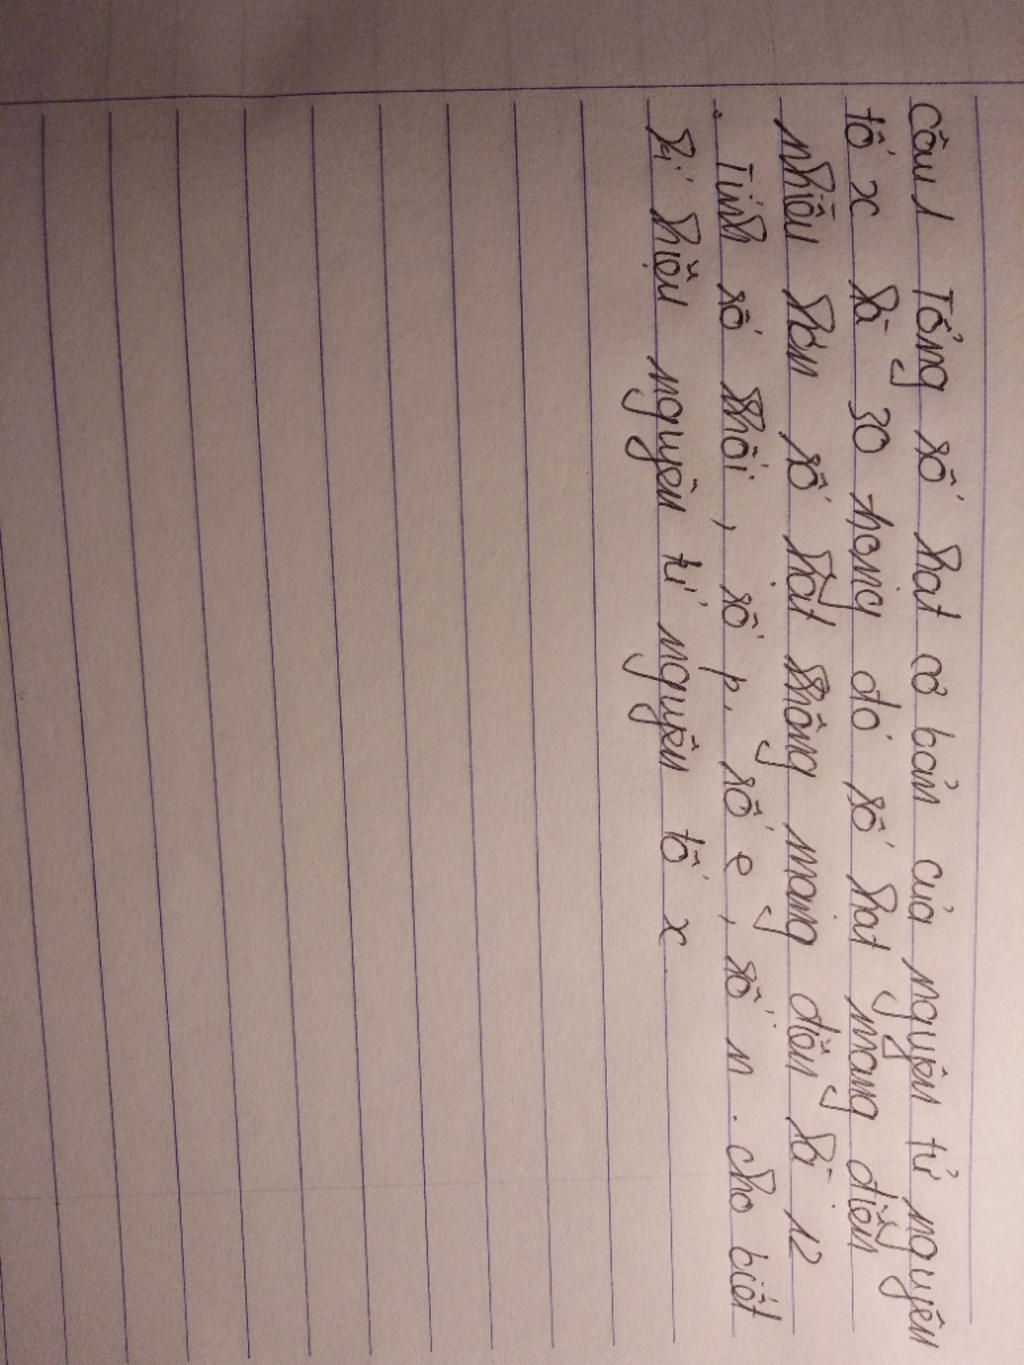 Câu 1 Tổng số hat cơ bản của nguyên tử nguyên
tố x là 30 trong đó số hat mang điện
nhiều hơn số hạt không mang điện là 12
. Tính số khối, số p, số e, số n. cho biết
kí hiệu nguyên tử nguyên tố x.